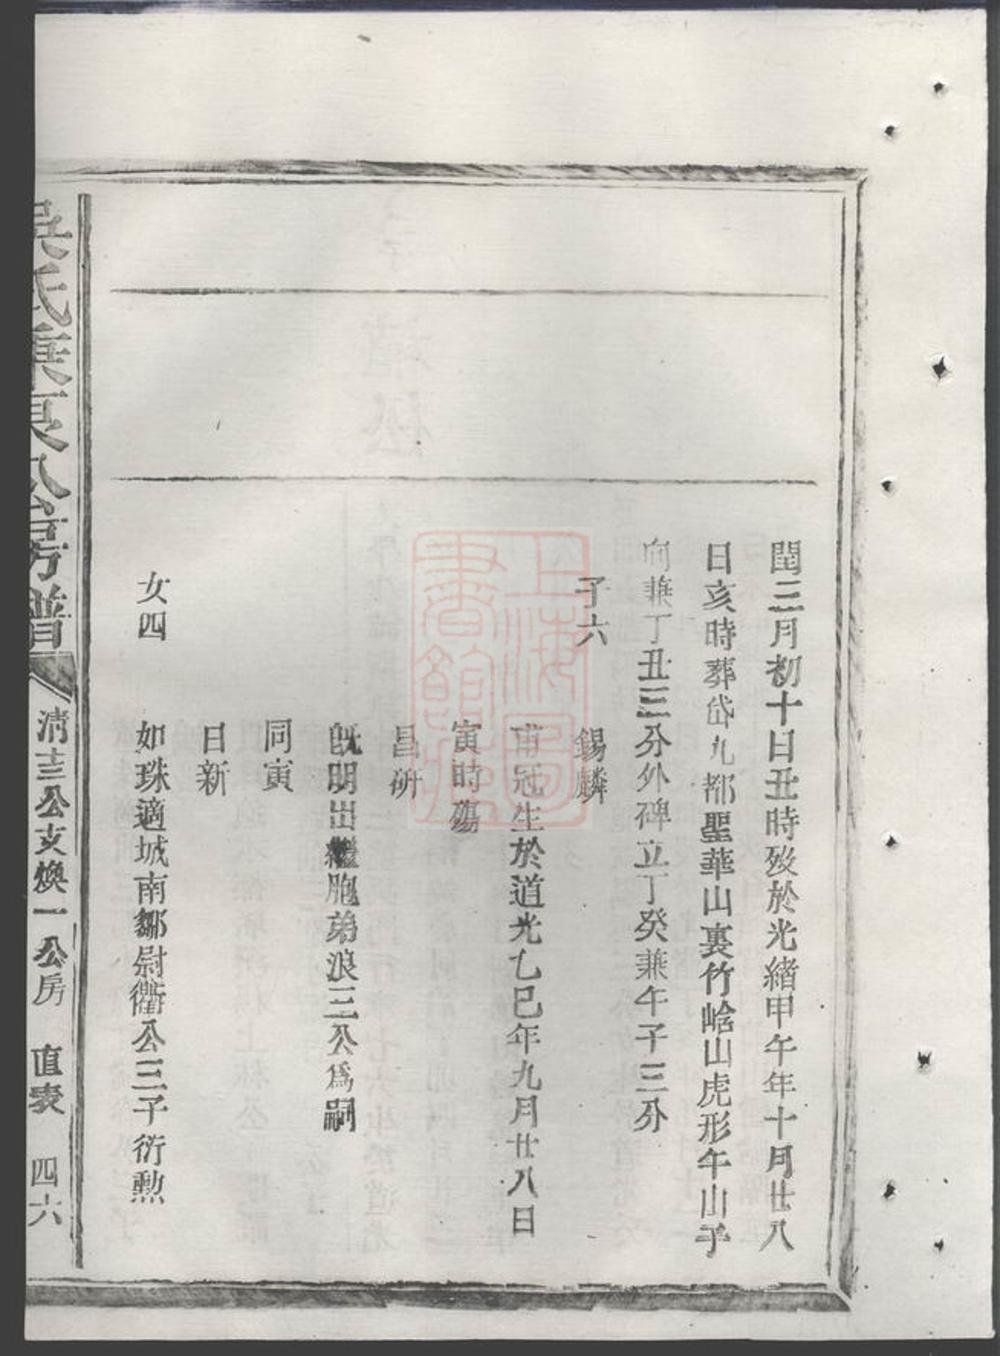 閏三月初十日丑時歿於光緒甲午年十月廿八
日亥時葬岱九都聖華山裏竹峆山虎形午山子
向兼丁丑三分外碑立丁癸兼午子三分
子六
錫麟
甫冠生於道光乙巳年九月廿八日
寅時殤
昌研
既明出繼胞弟浪三公爲嗣
同寅
日新
女四
如珠適城南鄒尉衢公三子衍勲
吳氏葉東公房譜
清士三公支煥一公房 直表 四六
上海圖書館藏